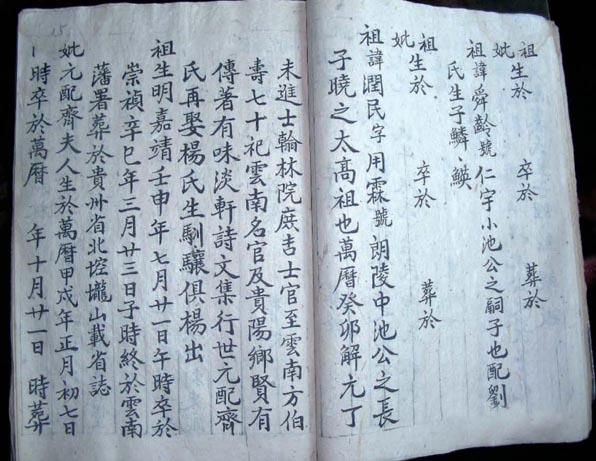 祖生於 卒於 葬於
妣
祖諱舜齡號仁宇小池公之嗣子也配劉
氏生子鱗、鍈
祖生於 卒於 葬於
妣
祖諱潤民字用霖號朗陵中池公之長
子曉之太高祖也萬曆癸卯解元丁
未進士翰林院庶吉士官至雲南方伯
壽七十祀雲南名官及貴陽鄉賢有
傳著有味淡軒詩文集行世元配齊
氏再娶楊氏生馴驤俱楊出
祖生明嘉靖壬申年七月廿一日午時卒於
崇禎辛巳年三月廿三日子時終於雲南
藩署葬於貴州省北埪壠山載省誌
妣元配齊夫人生於萬曆甲戌年正月初七日
時卒於萬曆 年十月廿一日 時葬
15